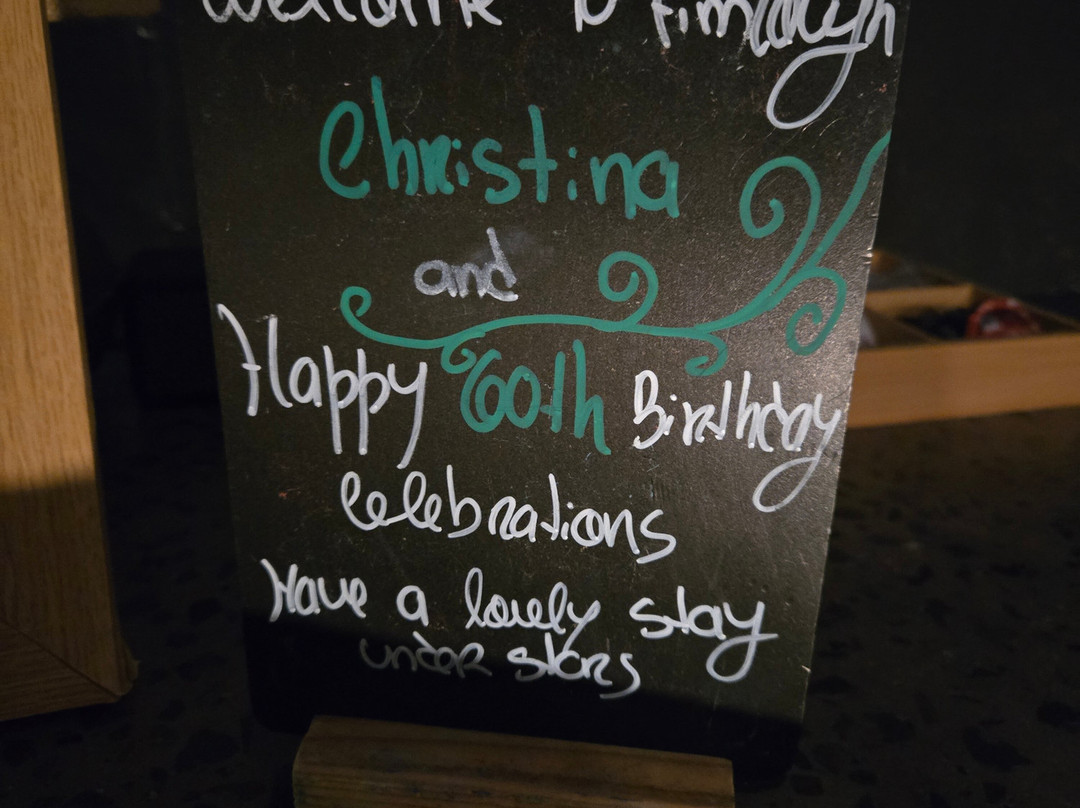 Welcome to
Christina
and
Happy 60th Birthday
Celebrations
Have a lovely stay
under stars